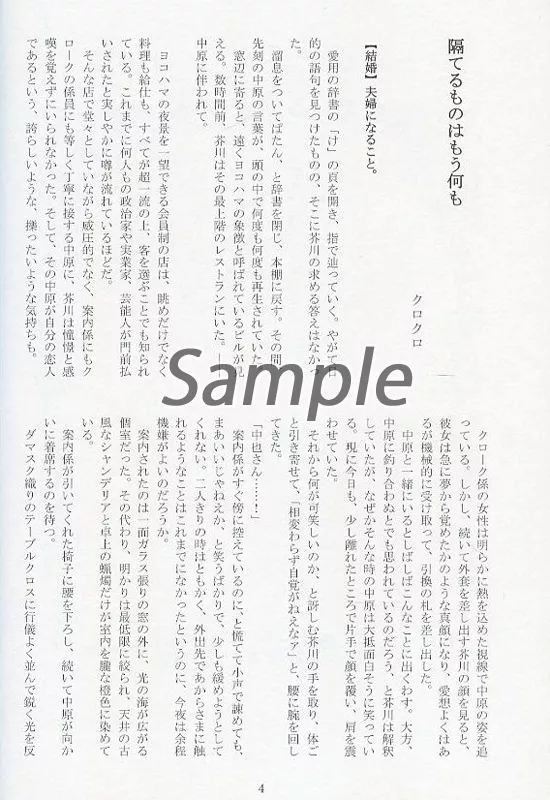 隔てるものはもう何も
クロクロ
【結婚】夫婦になること。
愛用の辞書の「け」の頁を開き、指で辿っていく。やがて目
的の語句を見つけたものの、そこに芥川の求める答えはなかっ
た。
溜息をついてぱたん、と辞書を閉じ、本棚に戻す。その間、
先刻の中原の言葉が、頭の中で何度も何度も再生されていた。
窓辺に寄ると、遠くヨコハマの象徴と呼ばれているビルが見
える。数時間前、芥川はその最上階のレストランにいた。――
中原に伴われて。
ヨコハマの夜景を一望できる会員制の店は、眺めだけでなく
料理も給仕も、すべてが超一流の上、客を選ぶことでも知られ
ている。これまでに何人もの政治家や実業家、芸能人が門前払
いされたと実しやかに噂が流れているほどだ。
そんな店で堂々としていながら威圧的でなく、案内係にもク
ロークの係員にも等しく丁寧に接する中原に、芥川は憧憬と感
嘆を覚えずにいられなかった。そして、その中原が自分の恋人
であるという、誇らしいような、擽ったいような気持ちも。
クローク係の女性は明らかに熱を込めた視線で中原の姿を追
っている。しかし、続いて外套を差し出す芥川の顔を見ると、
彼女は急に夢から覚めたかのような真顔になり、愛想よくはあ
るが機械的に受け取って、引換の札を差し出した。
中原と一緒にいるとしばしばこんなことに出くわす。大方、
中原に釣り合わぬとでも思われているのだろう、と芥川は解釈
していたが、なぜかそんな時の中原は大抵面白そうに笑ってい
る。現に今日も、少し離れたところで片手で顔を覆い、肩を震
わせていた。
それから何が可笑しいのか、と訝しむ芥川の手を取り、体ご
と引き寄せて、「相変わらず自覚がねえなァ」と、腰に腕を回し
てきた。
「中也さん……！」
案内係がすぐ傍に控えているのに、と慌てて小声で諫めても、
まあいいじゃねえか、と笑うばかりで、少しも緩めようとして
くれない。二人きりの時はともかく、外出先であからさまに触
れるようなことはこれまでになかったというのに、今夜は余程
機嫌がよいのだろうか。
案内されたのは一面ガラス張りの窓の外に、光の海が広がる
個室だった。その代わり、明かりは最低限に絞られ、天井の古
風なシャンデリアと卓上の蝋燭だけが室内を朧な橙色に染めて
いる。
案内係が引いてくれた椅子に腰を下ろし、続いて中原が向か
いに着席するのを待つ。
ダマスク織りのテーブルクロスに行儀よく並んで鋭く光を反
Sample
4